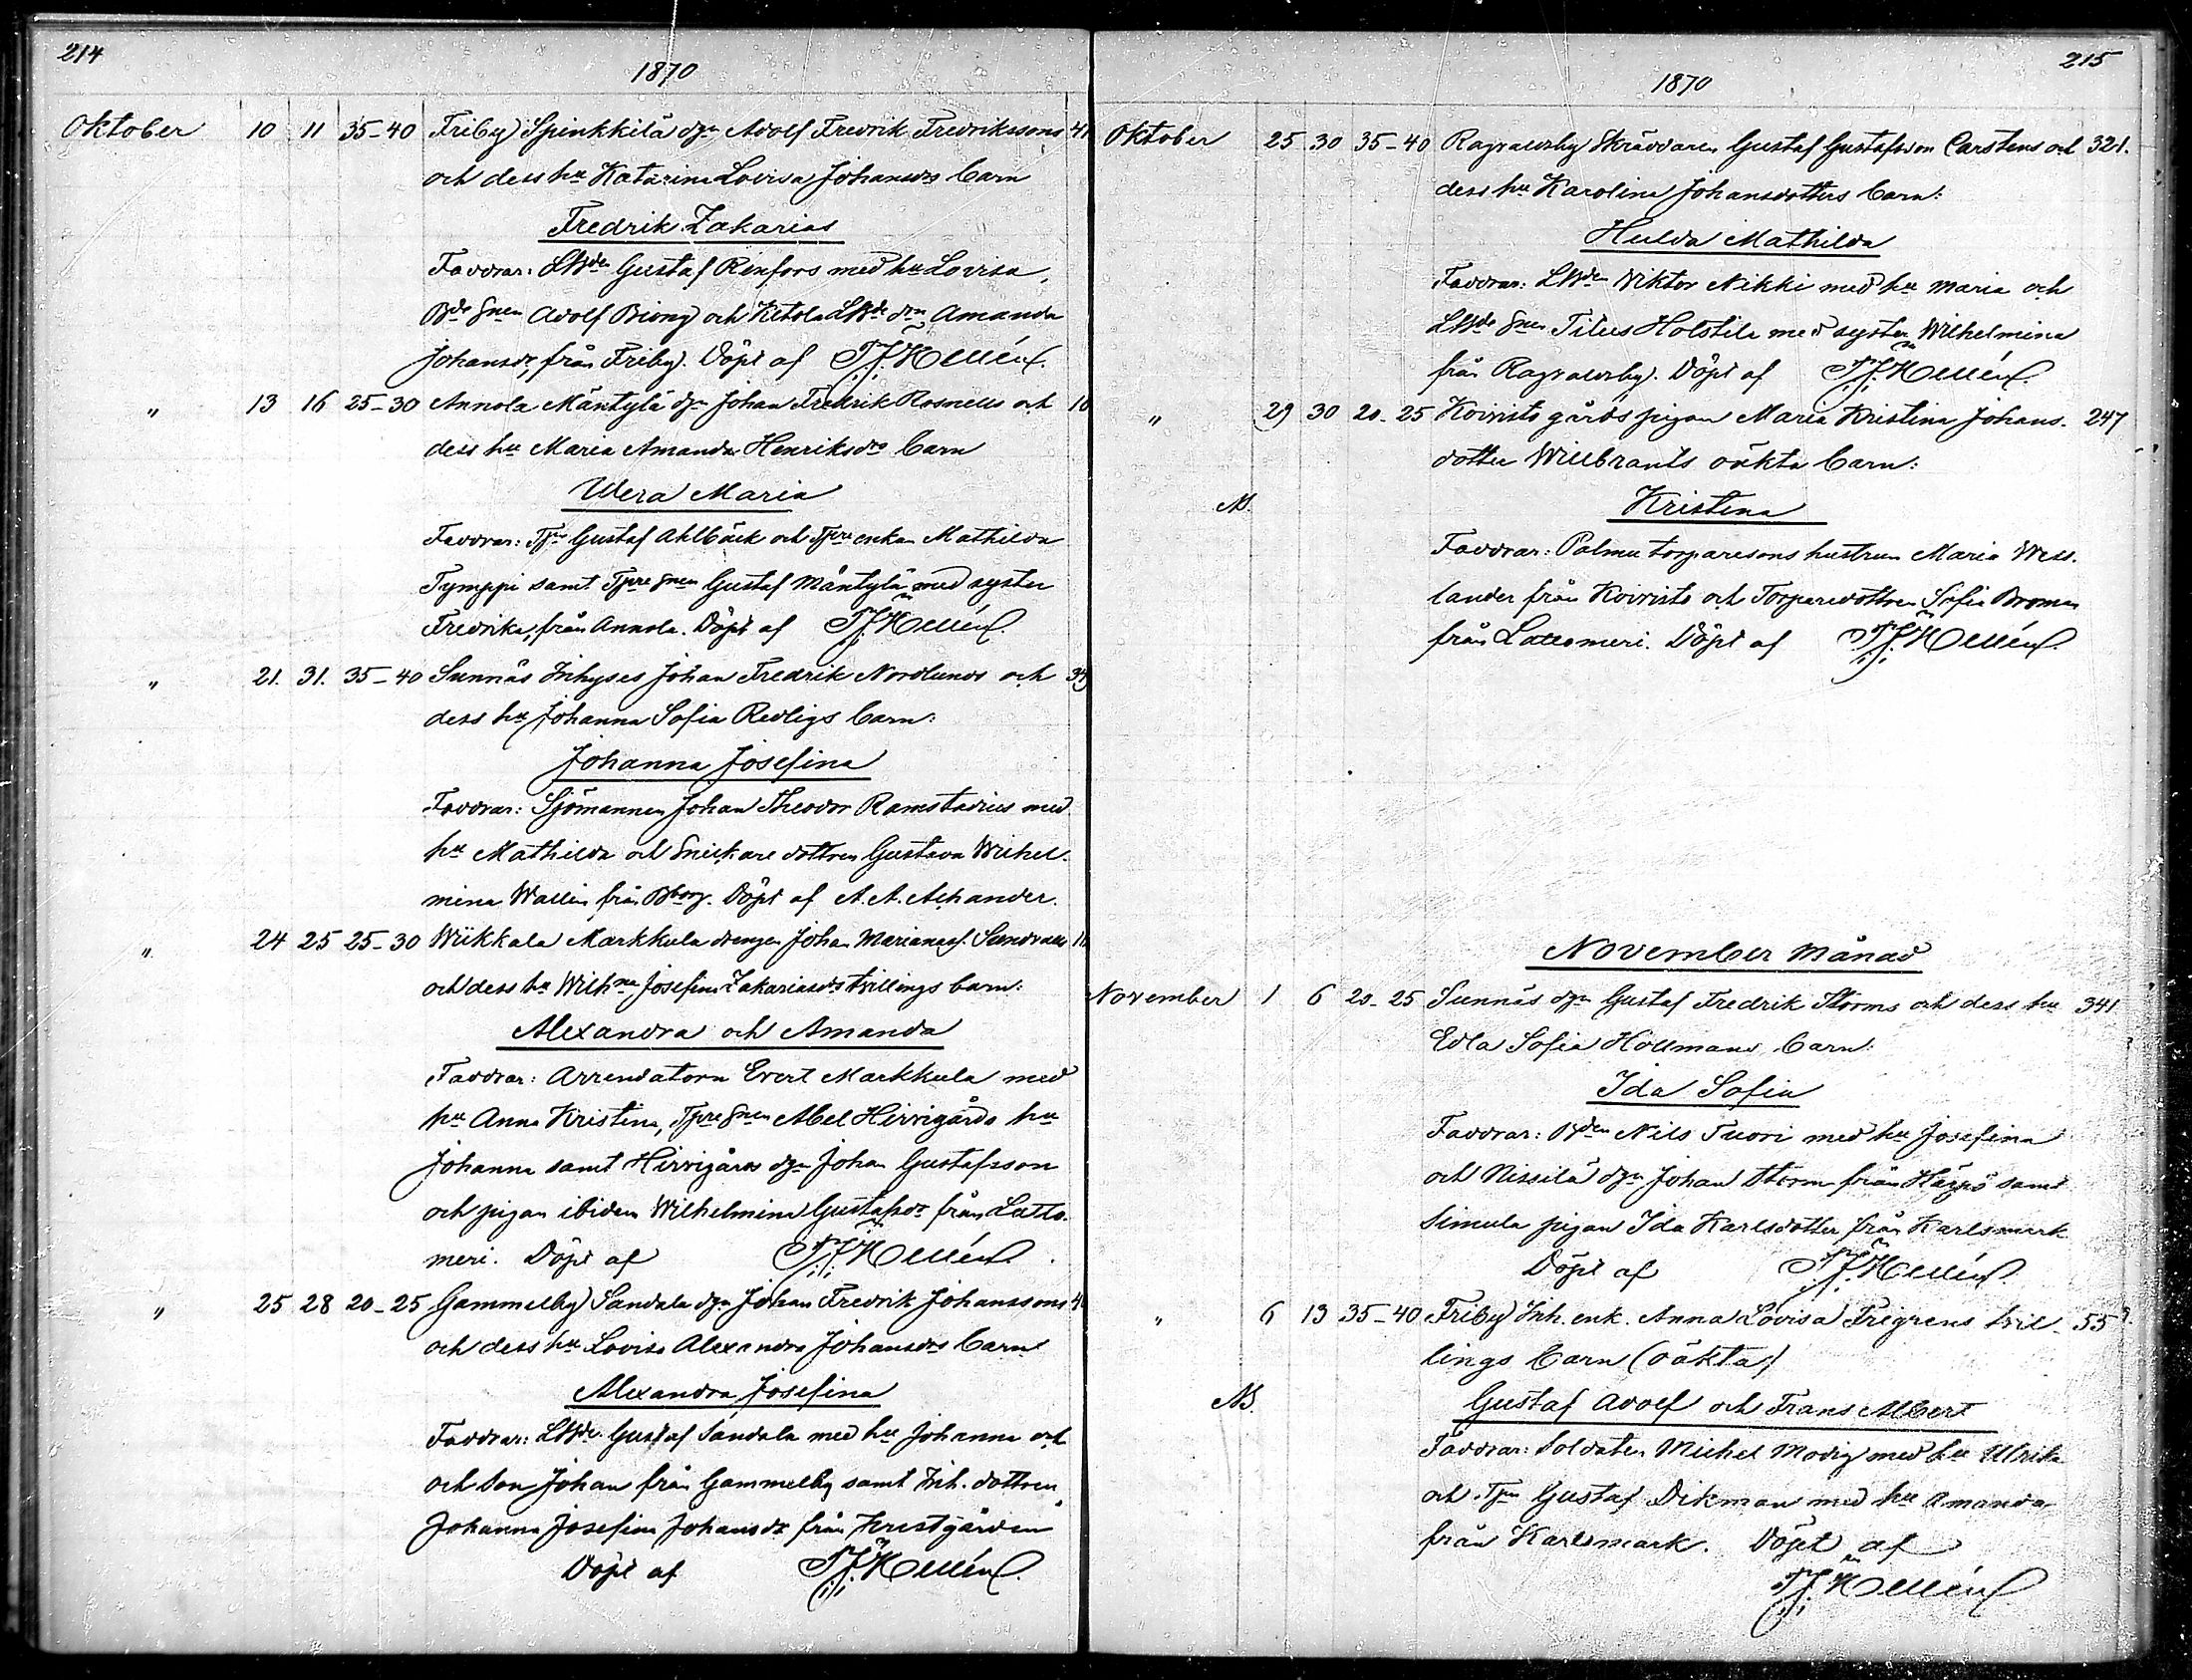 214
1870
Oktober 10 11 35-40 Friby Spinkkilä dgn Adolf Fredrik Fredrikssons 41
och dess hu Katarina Lovisa Johansdrs barn
Fredrik Zakarias
Faddrar: LBden Gustaf Renfors med hu Lovisa,
Bde snen Adolf Bviong och Ketola LBde drn Amanda
Johansdr, från Friby. Döpt af F.J. Hellén.
" 13 16 25-30 Annola Mäntylä dgn Johan Fredrik Rosnells och
dess hu Maria Amanda Henriksdrs barn
Wera Maria
Faddrar: Tpn Gustaf Ahlbäck och Tpre enkan Mathilda
Tymppi samt Tpre snen Gustaf Mäntylä med syster
Fredrika, från Annola. Döpt af F.J. Hellén.
" 21. 31. 35-40 Sunnäs Inhyses Johan Fredrik Nordlunds och
dess hu Johanna Sofia Redligs barn:
Johanna Josefina
Faddrar: Sjömannen Johan Theodor Ramstadius med
hu Mathilda och Snickare dottren Gustava Wilhel-
mina Wallin från Bborg. Döpt af A. A. Achander.
" 24 25 25-30 Wiikkala Markkula drengen Johan Marianaf. Sundvalls
och dess hu Wilhna Josefina Zakariasdrs tvillings barn:
Alexandra och Amanda
Faddrar: Arrendatorn Evert Markkula med
hu Anna Kristina, Tpre snen Abel Hirvigårds hu
Johanna samt Hirvigårds dgn Johan Gustafsson
och pigan ibidem Wilhelmina Gustafsdr från Latto-
meri. Döpt af F.J. Hellén.
" 25 28 20-25 Gammelby Sandala dgn Johan Fredrik Johanssons
och dess hu Lovisa Alexandra Johansdrs barn
Alexandra Josefina
Faddrar: LBden Gustaf Sandala med hu Johanna och
och son Johan från Gammelby samt Inh. dottren
Johanna Josefina Johansdr från
Döpt af F.J. Hellén.
215
1870
Oktober 25 30 35-40 Ragvaldsby Skräddaren Gustaf Gustafsson Carstens och 321.
dess hu Karolina Johansdotters barn:
Hulda Mathilda
Faddrar: LBden Viktor Nikki med hu Maria och
LBde snen Titus Holstila med syster Wilhelmina
från Ragvaldsby. Döpt af F.J. Hellén.
" 29 30 20-25 Koivisto gårds pigan Maria Kristina Johans- 247
dotter Willbrants oäkta barn:
NB. Kristina
Faddrar: Palmu torparesons hustrun Maria Wess-
lander från Koivisto och Torparedottren Sofia Broman
från Lattomeri. Döpt af F.J. Hellén.
November Månad
November 1 6 20-25 Sunnäs dgn Gustaf Fredrik Storms och dess hu 341
Edla Sofia Hollmans barn:
Ida Sofia
Faddrar: Bden Nils Tuori med hu Josefina
och Nissilä dgn Johan Storm från Härpö samt
Simula pigan Ida Karlsdotter från Karlsmark
Döpt af F.J. Hellén.
" 6 13 35-40 Friby Inh. enk. Anna Lovisa Frigrens tvil- 55
lings barn (oäkta)
NB. Gustaf Adolf och Frans Albert
Faddrar: Soldaten Michel Modig med hu Ulrika
och Tpn Gustaf Dikman med hu Amanda
från Karlsmark. Döpt af
F.J. Hellén.